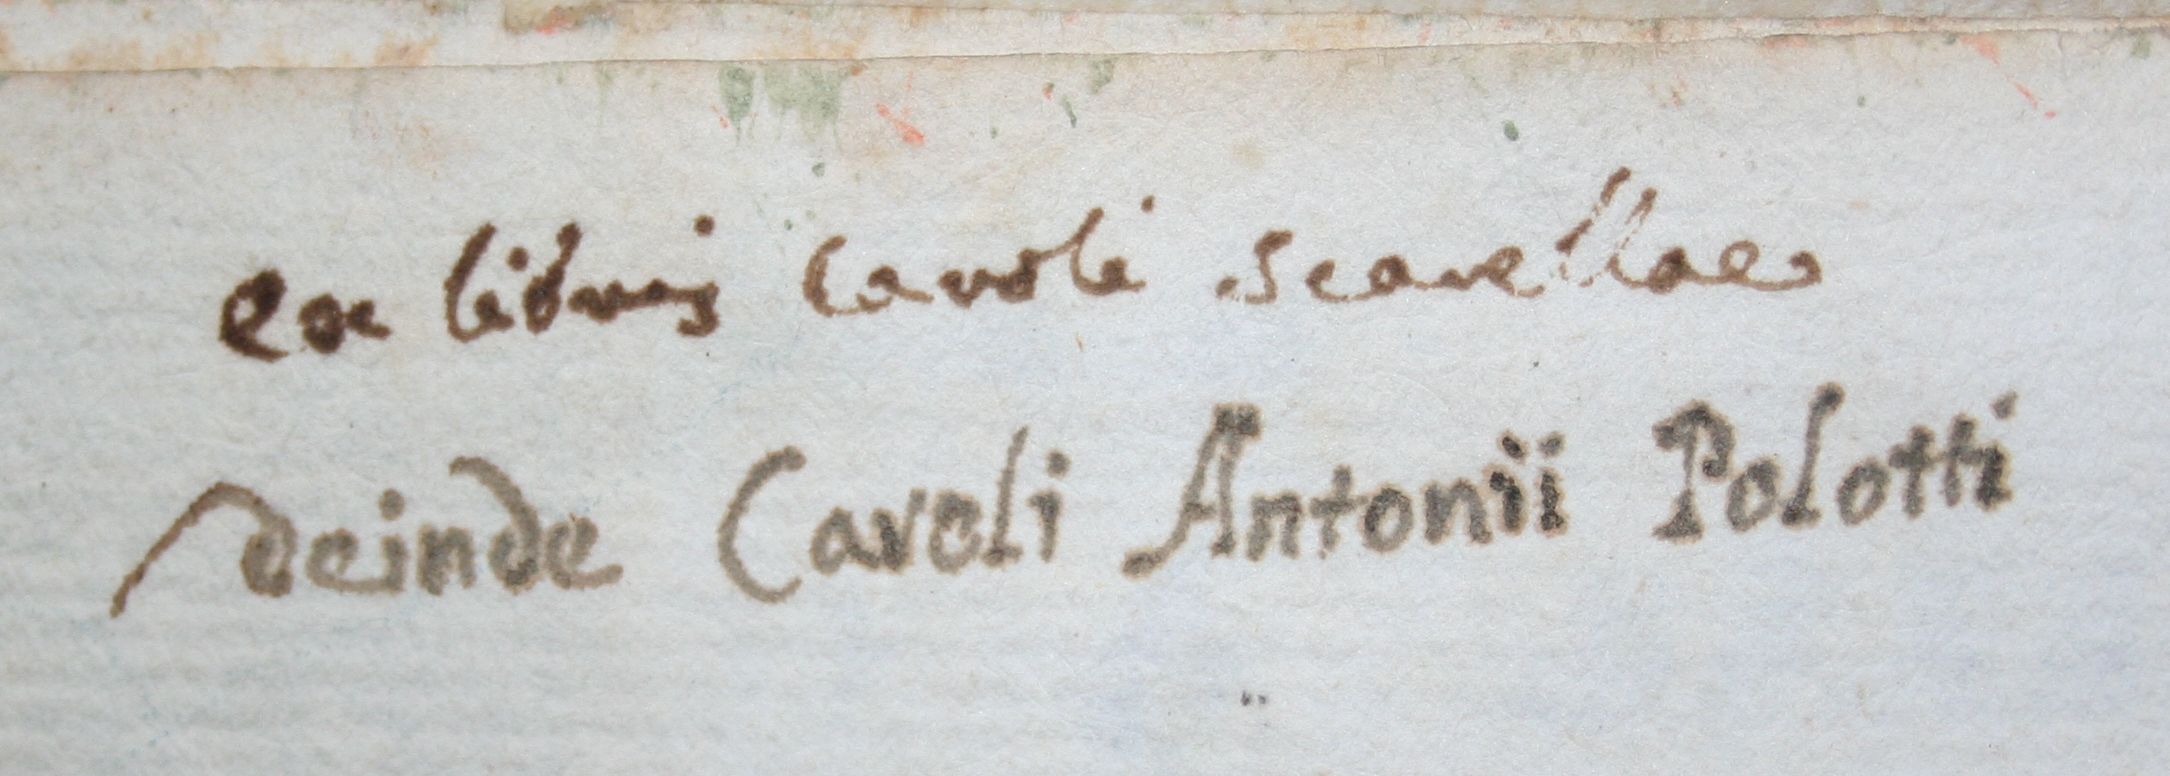 ex libris caroli scarellae
deinde Caroli Antonii Polotti